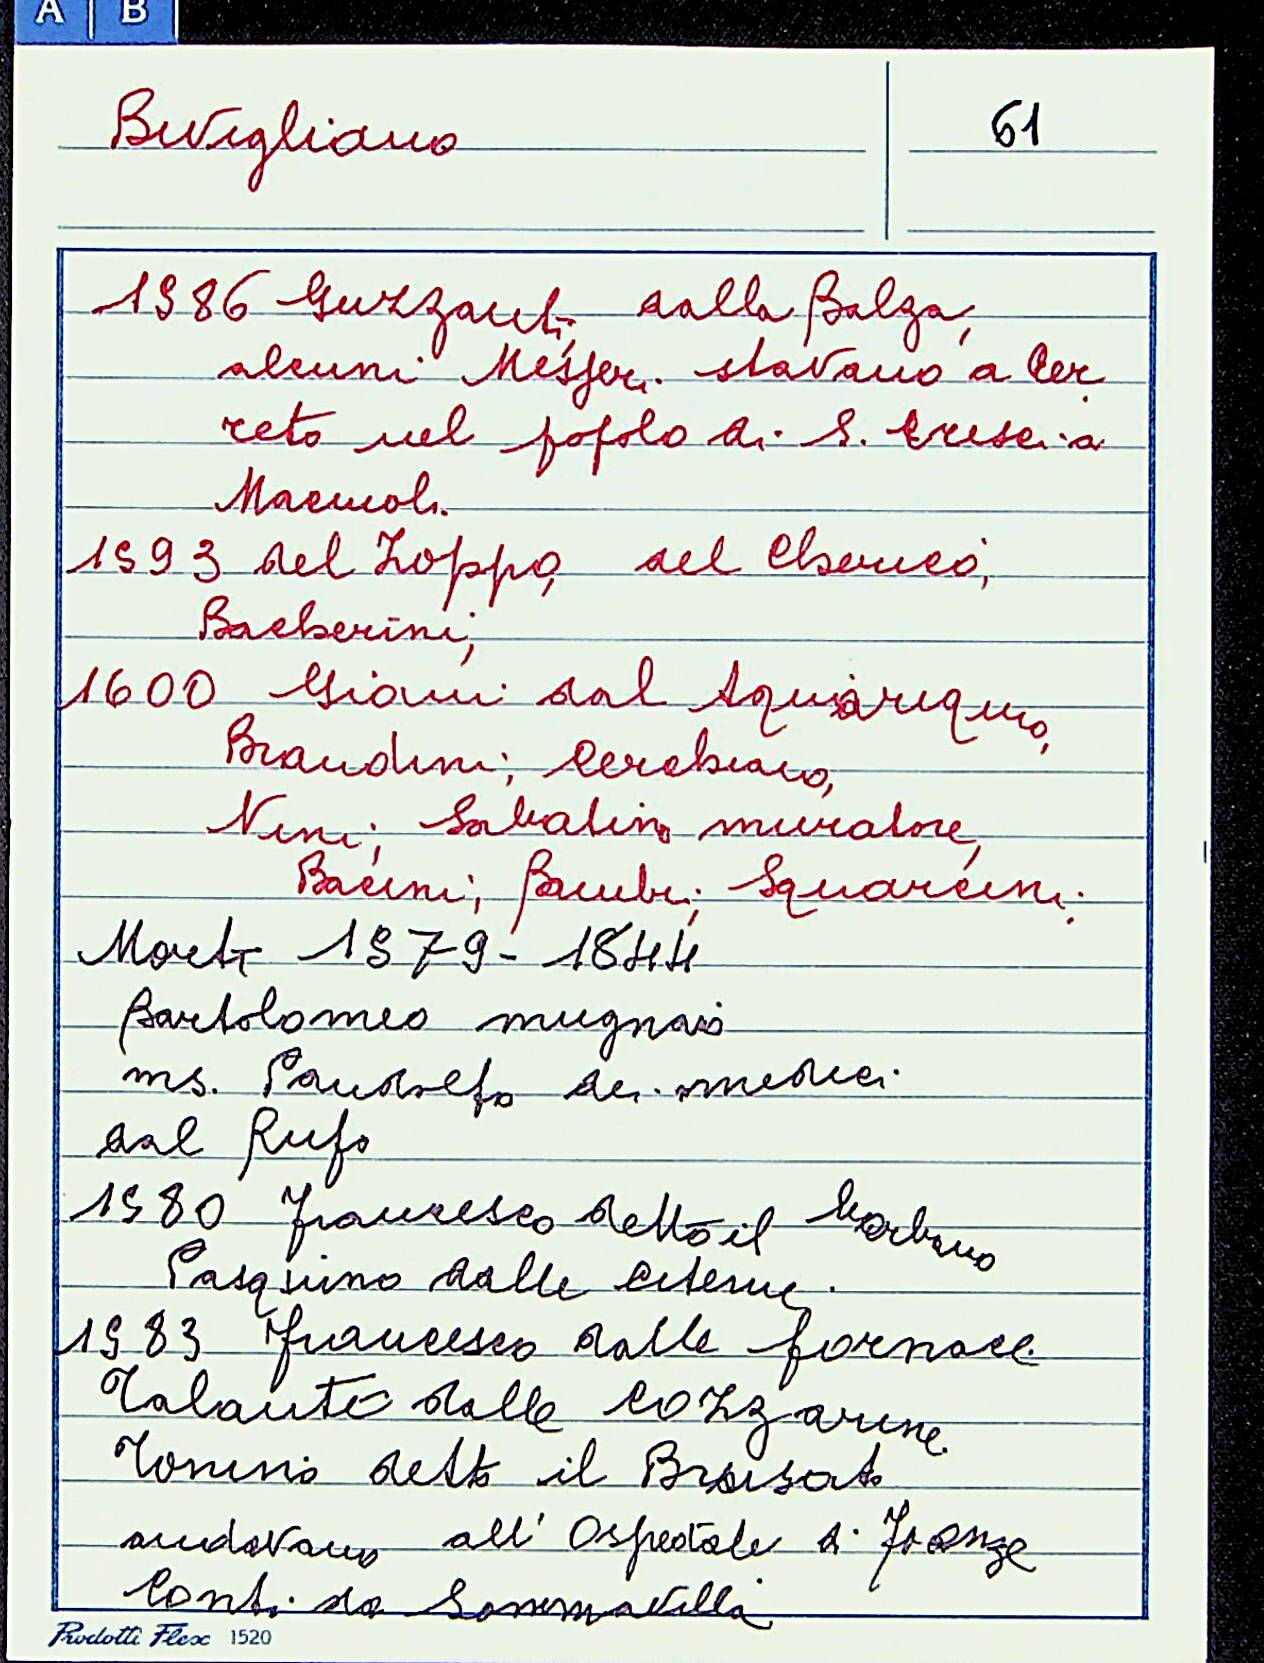 A B
Buvigliano
61
1586 Guzzanti, dalla Balza,
alcuni Messeri. stavano a Cer
reto nel popolo di S. Cresci a
Macioli.
1593 del Zoppo, del Cherico,
Barberini;
1600 Gianni dal
Brandini; Cerchiaio,
Nini; Sabatino muratore,
Bacini; Bambi; Squarcini;
Morti 1579-1844
Bartolomeo mugnaio
ms. Pandolfo dei medici
dal Rufo
1580 Francesco detto il
Pasquino dalle citerne.
1583 Francesco dalle fornace
Talanto dalle Cozzarine
Tonino detto il
andavano all' Ospedale di Firenze
Conti da Sommavilla
Prodotti Flex 1520